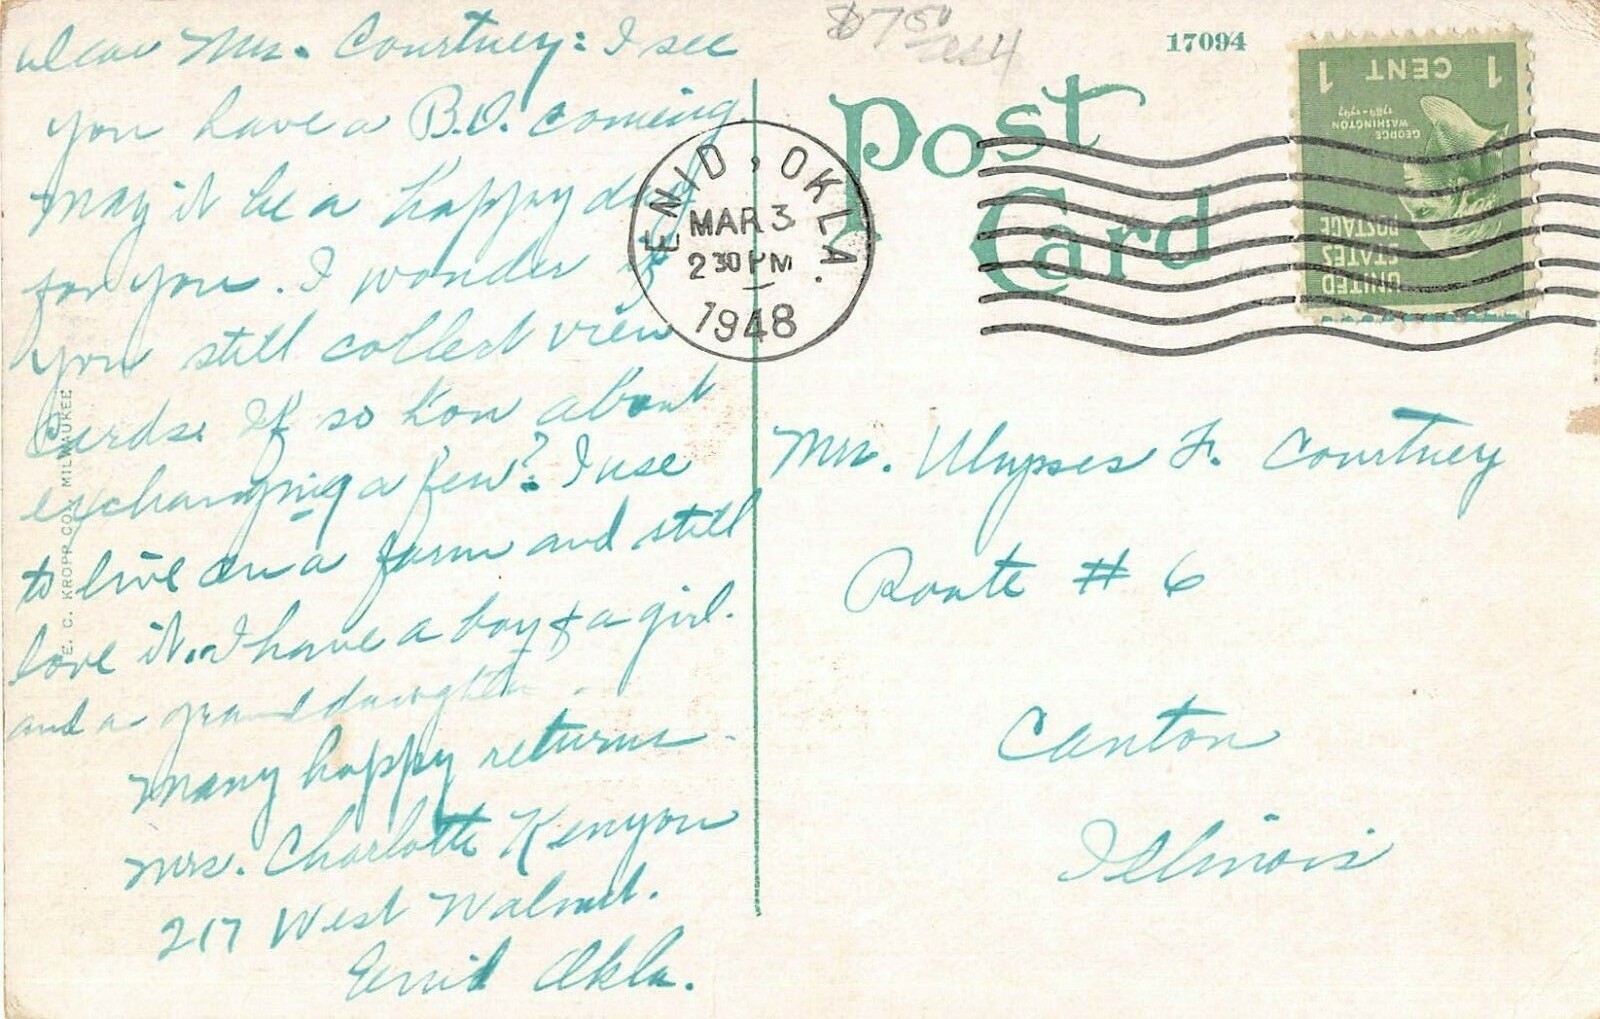 Dear Mrs. Courtney: I see
you have a B.D. coming
may it be a happy day
for you. I wonder if
you still collect view
cards. If so how about
exchanging a few? I use
to live on a farm and still
love it. I have a boy & a girl.
and a granddaughter.
Many happy returns.
Mrs. Charlotte Kenyon
217 West Walnut.
Enid Okla.
E. C. KROPP CO., MILWAUKEE
17094
Post
Card
ENID, OKLA.
MAR 3
2 30 PM
1948
1 CENT 1
GEORGE
WASHINGTON
1789-1797
UNITED
STATES
POSTAGE
Mrs. Ulysses F. Courtney
Route # 6
Canton
Illinois